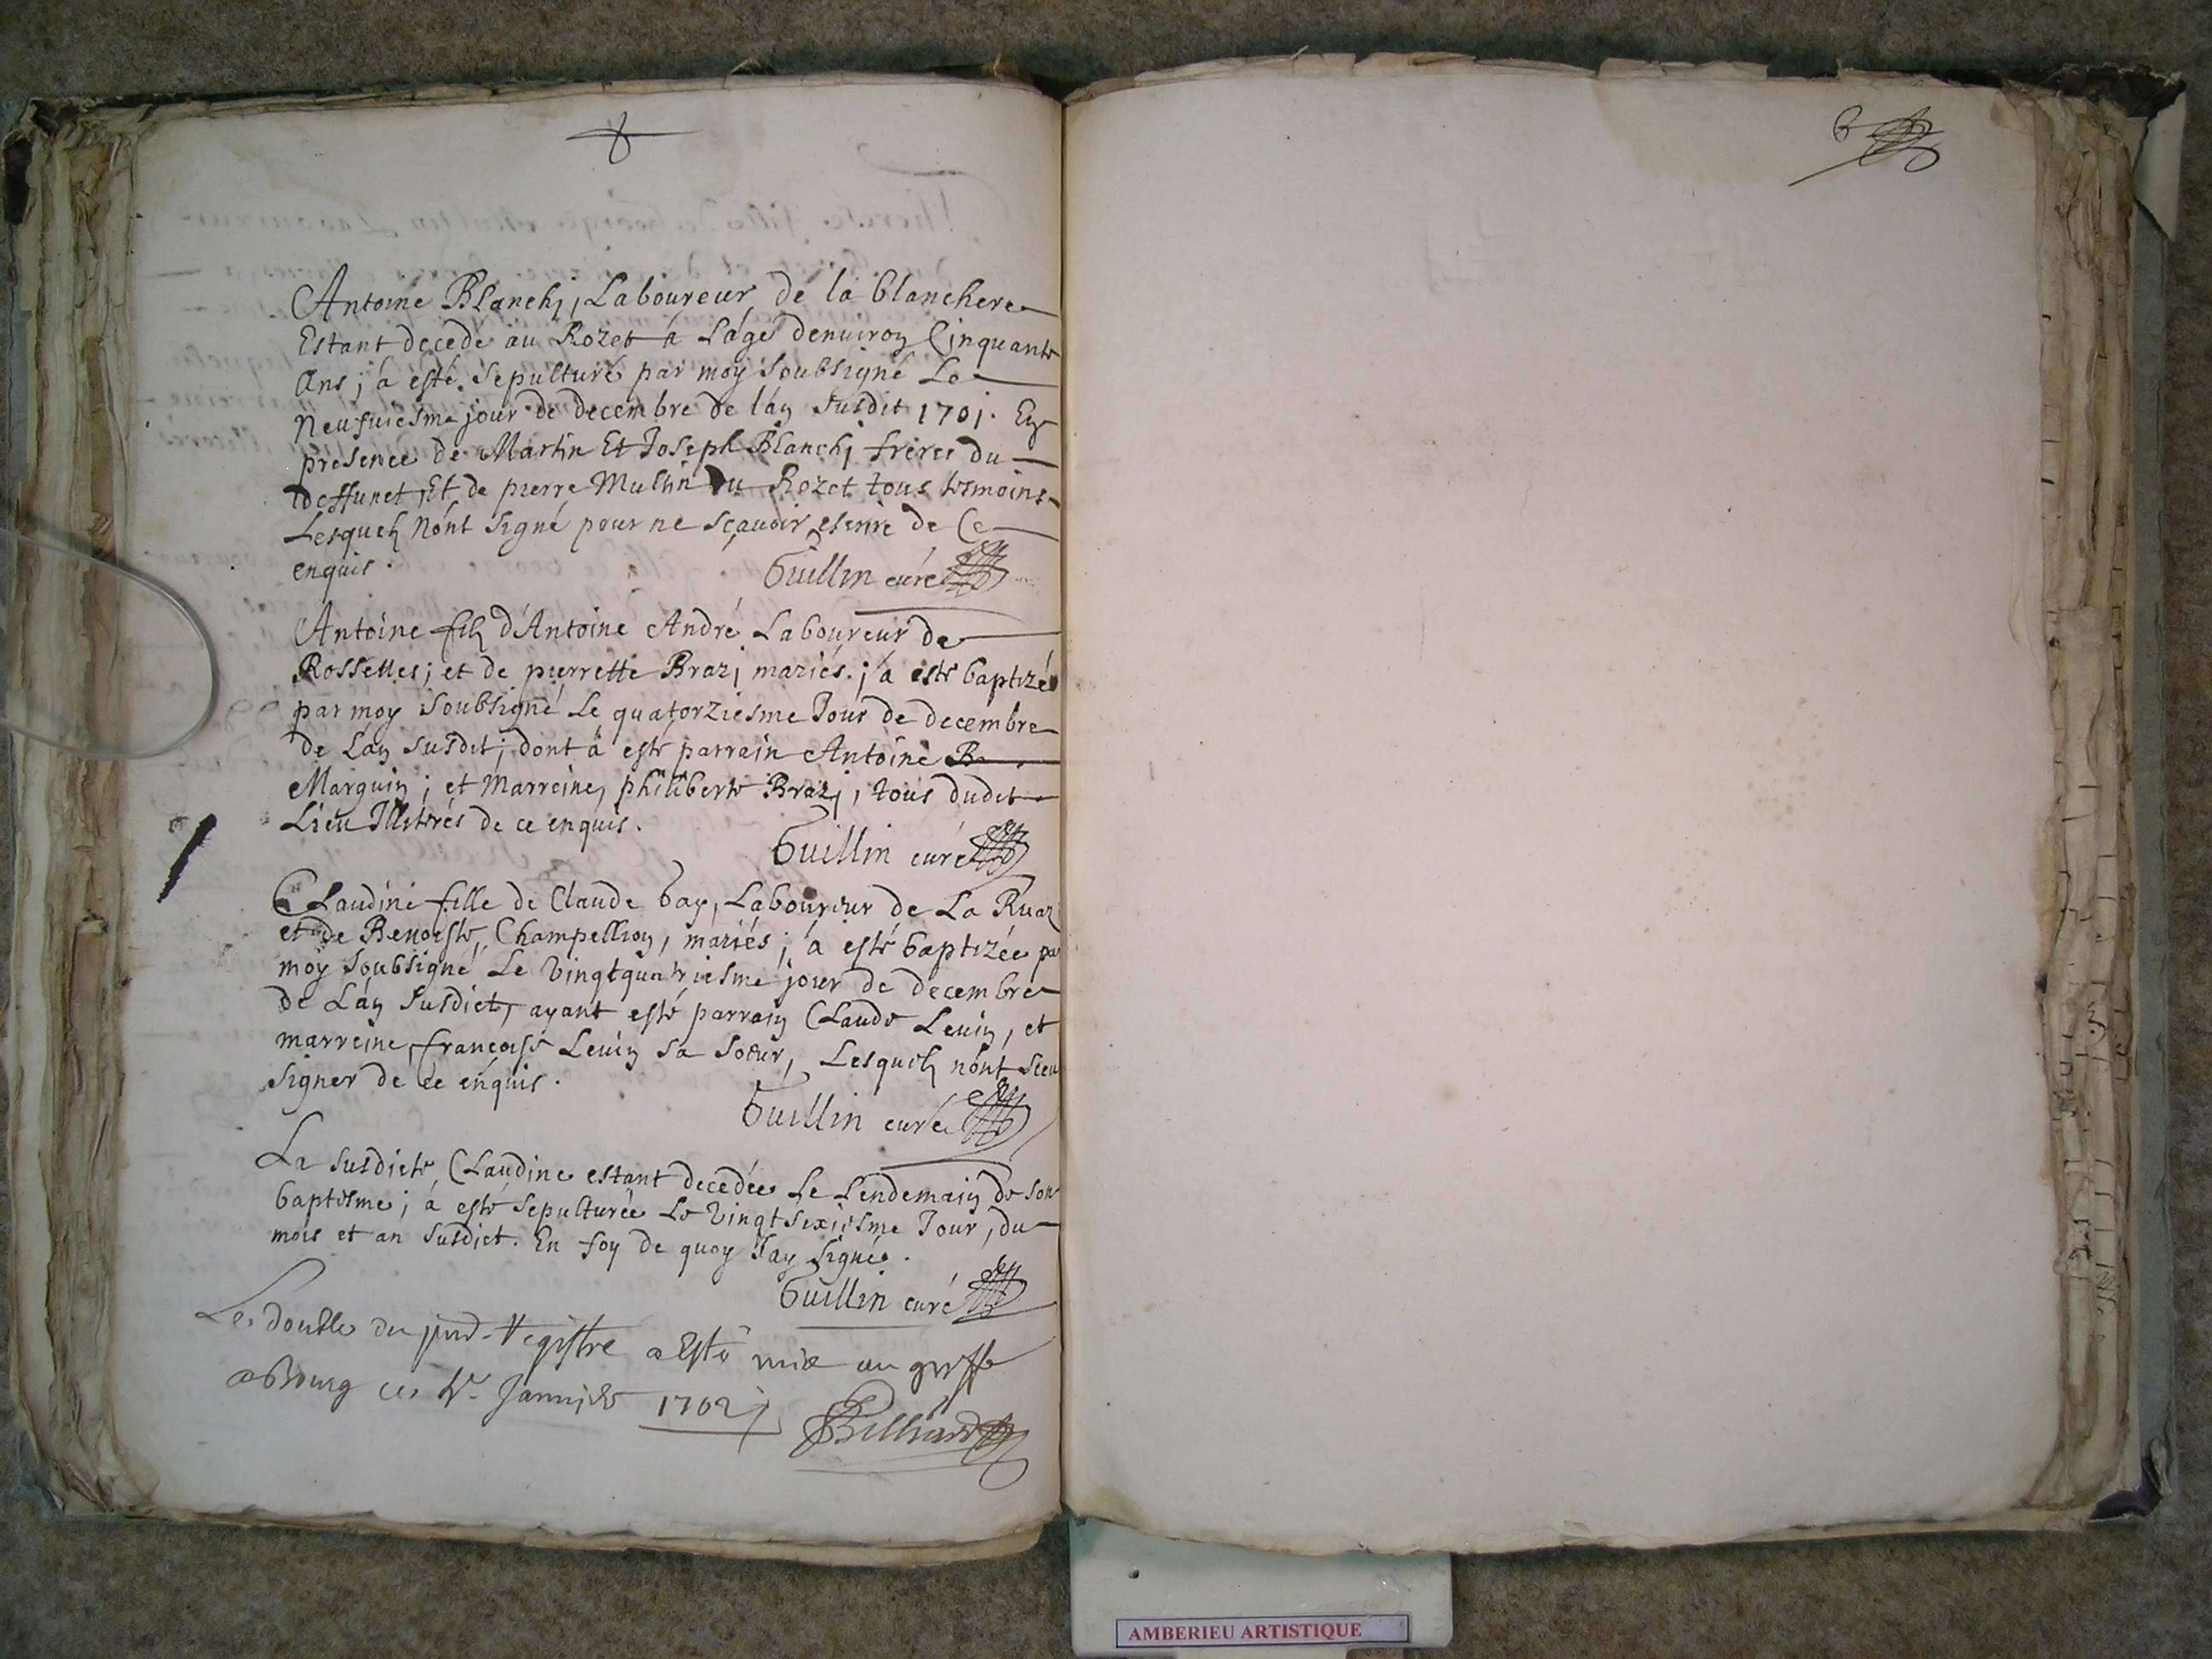 Antoine Blanchj, Laboureur de la blanchere
Estant decedé au Rozet a Lâge denuiron Cinquante
Ans; a esté sepulturé par moy soubsigné Le
Neufuiesme jour de decembre de l'an susdit 1701. En
presence de Martin Et Joseph Blanchj freres du
deffunct, Et de pierre Multin du Rozet tous tesmoins
Lesquels n'ont signé pour ne sçauoir escrire de Ce
enquis.
Guillin curé
Antoine fils d'Antoine André Laboureur de
Rosselles; et de pierrette Brazj mariés; a esté baptizé
par moy soubsigné Le quatorziesme Jour de decembre
de L'an susdit; dont a esté parrain Antoine B
Marguin; et Marreine, philiberte Brazj, tous dudit
Lieu Illiterés de ce enquis.
Guillin curé
Claudine fille de Claude Gay, Laboureur de La Ruaz
et de Benoiste Champellion, mariés; a esté baptizée par
moy soubsigné Le vingtquatriesme jour de decembre
de L'an susdict, ayant esté parrain Claude Leuin, et
marreine françoise Leuin sa soeur, Lesquels n'ont sceu
signer de ce enquis.
Guillin curé
La susdicte Claudine estant decedée Le Lendemain de son
baptesme; a esté sepulturée Le vingtsixiesme Jour, du
mois et an susdict. En foy de quoy J'ay signé.
Guillin curé
Le double du registre a Esté mis au greffe
a Bourg ce Januier 1702
Billiard
AMBERIEU ARTISTIQUE